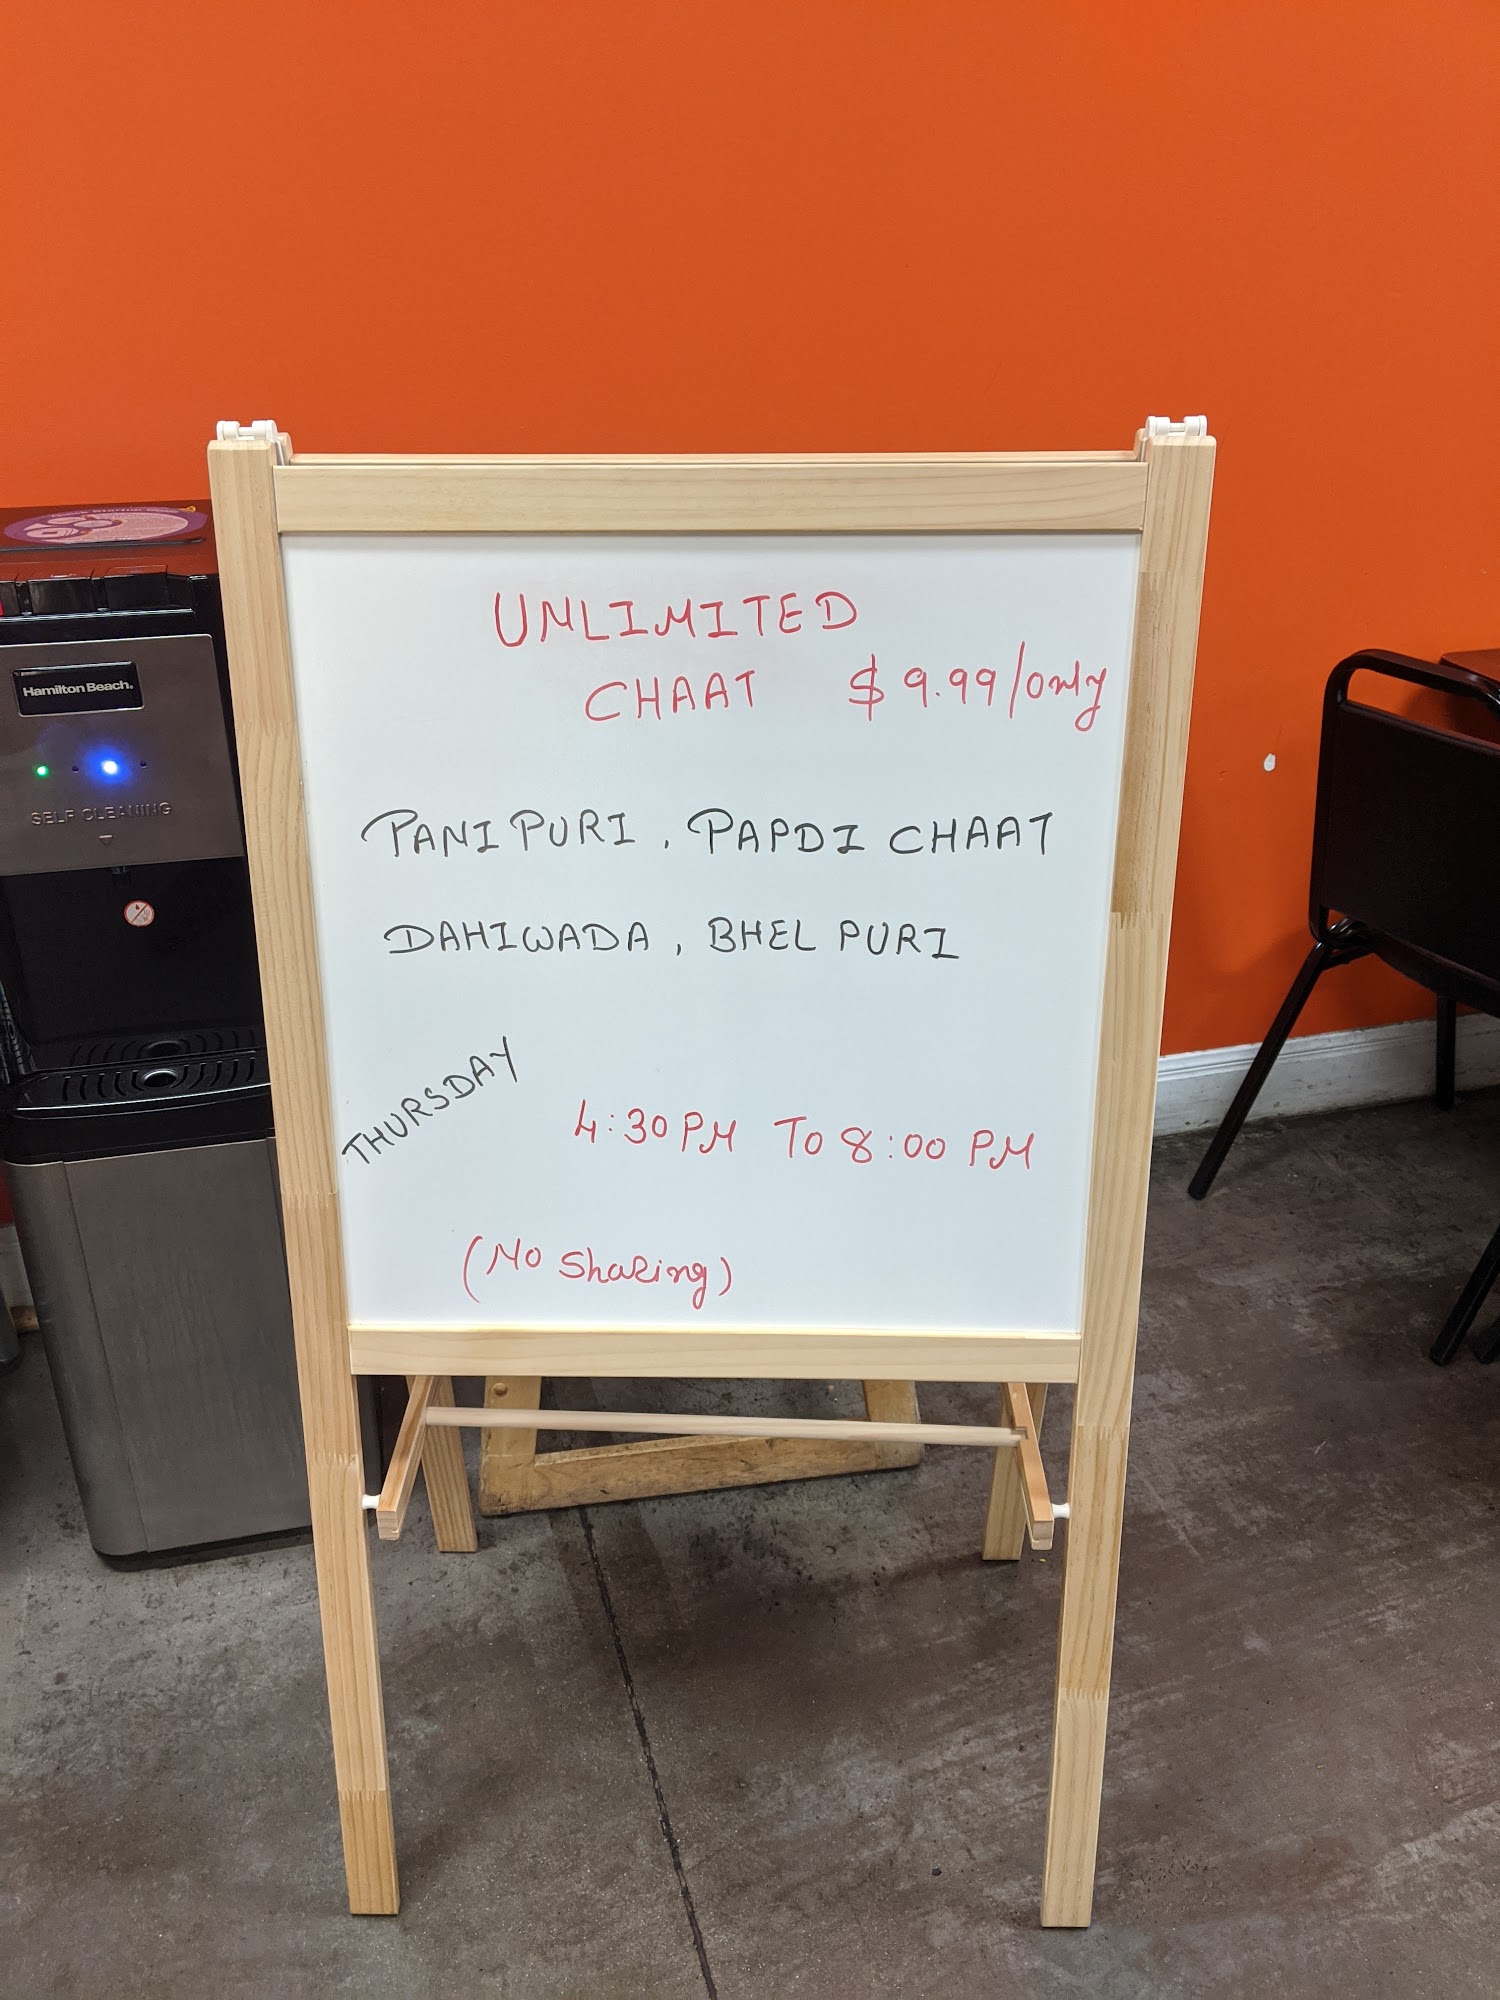 UNLIMITED
CHAAT $9.99/only
PANI PURI, PAPDI CHAAT
DAHIWADA, BHEL PURI
THURSDAY
4:30 PM TO 8:00 PM
(No Sharing)
Hamilton Beach.
SELF CLEANING